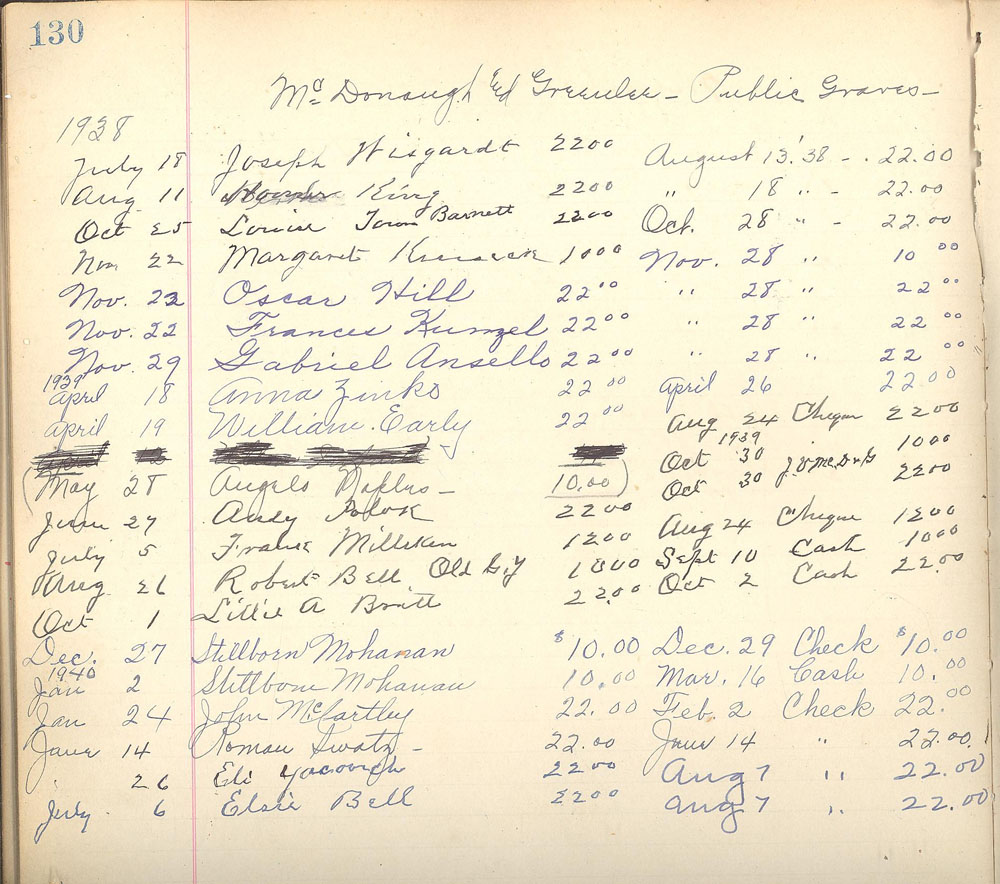 130
McDonaugh Ed Greenlee - Public Graves -
1938
July 18 Joseph Wisgardt 2200 August 13. '38 - . 22.00
Aug 11 King 2200 " 18 " - 22.00
Oct 25 Louise Town Barnett 22.00 Oct. 28 " - 22.00
Nov 22 Margaret 1000 Nov. 28 " 10 00
Nov. 22 Oscar Hill 22 00 " 28 " 22 00
Nov. 22 Frances Kunzel 22 00 " 28 " 22 00
Nov. 29 Gabriel Ansello 22 00 " 28 " 22 00
1939
April 18 Anna Zinko 22 00 April 26 22 00
April 19 William Early 22 00 Aug 24 Cheque 22 00
1939
Oct 30 1000
(May 28 Angelo - 10.00) Oct 30 2200
June 27 Andy Polok 22 00 Aug 24 Cheque 1200
July 5 Frank Milliken 1200 Sept 10 Cash 1000
Aug 26 Robert Bell Old G.Y 1000 Oct 2 Cash 22.00
Oct 1 Lillie A Britt 22.00
Dec. 27 Stillborn Mohanan $10.00 Dec. 29 Check $10.00
1940
Jan 2 Stillborn Mohanan 10.00 Mar. 16 Cash 10.00
Jan 24 John McCartley 22.00 Feb. 2 Check 22.00
June 14 Roman Swatz - 22.00 June 14 " 22.00
" 26 Eli Yacovich 22.00 Aug 7 " 22.00
July 6 Elsie Bell 2200 Aug 7 " 22.00